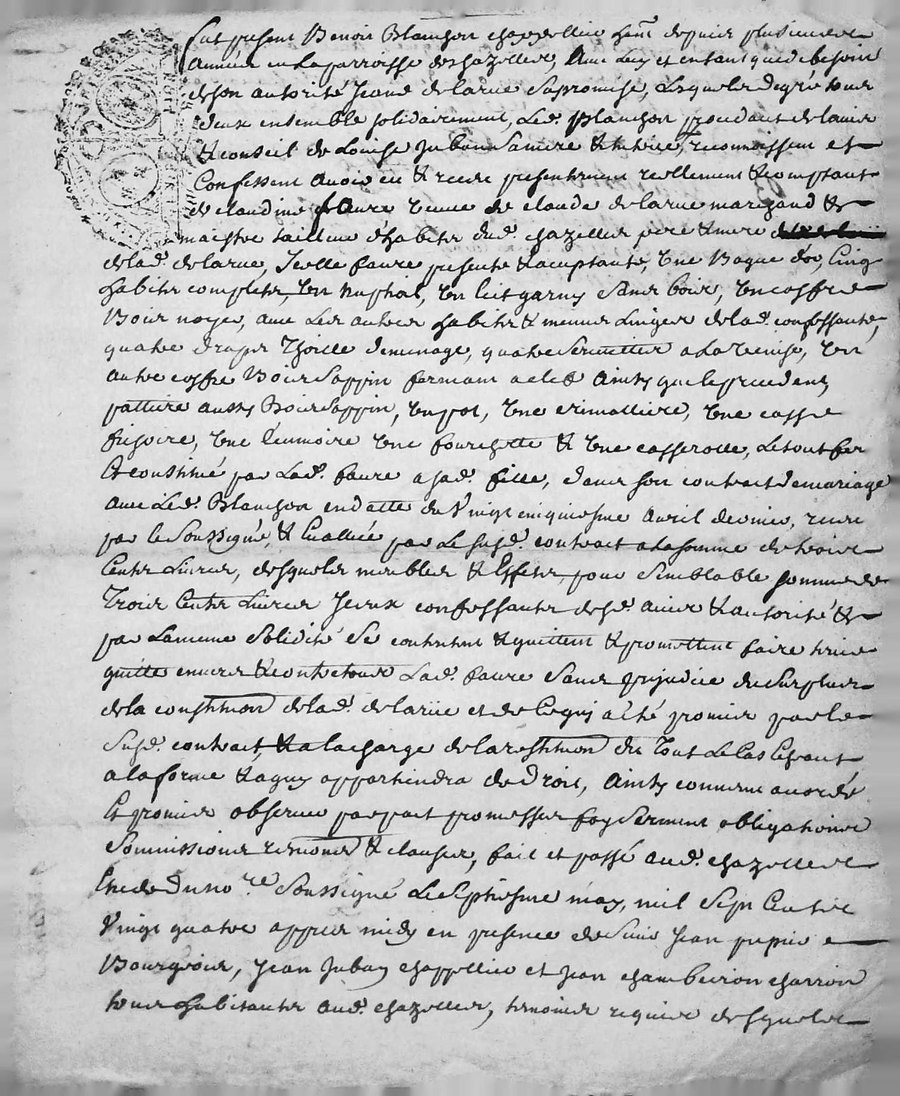 fut present Benoit Blanchon chappellier habt. depuis plusieurs
années en la parroisse de chazelles, avec luy et entant que de besoin
de son autorité Jeane delarue sa promise, lesquels de gré tous
deux ensemble solidairement, led. Blanchon procedant de lavis
& conseil de Louise Juban sa mere & tutrice, reconnoissent et
Confessent avoir eu & receu presentement reellement & comptant
de claudine faure veuve de claude delarue marchand &
maistre tailleur d'habits dud. chazelles pere & mere
delad. delarue, Icelle faure presente & acceptante, une Bague d'or, Cinq
habits complets, un nuptial, un lit garny sans bois, un coffre
Bois noyer, avec les autres habits & menus linges delad. confessante,
quatre draps thoille de menage, quatre serviettes a la Venise, un
autre coffre Bois sappin fermant a clef ainsy que le precedent,
pattiere aussy Bois sappin, un pot, une crimalliere, une casse
frisoire, une Ecumoire une fourchette & une casserolle, le tout fer
Et constitué par lad. faure a sad. fille, dans son contrat de mariage
avec led. Blanchon en datte du vingt cinquiesme avril dernier, receu
par le soussigné, & Evallué par le susd. contract a la somme de trois
Cents Livres, desquels meubles & Effets, pour semblable somme de
Trois Cents Livres Iceux confessants desd. avis & autorité &
par la meme solidité se contentent & quittent & promettent faire tenir
quitte envers & contre tous lad. faure sans prejudice du surplus
de la constitution delad. delarüe et de ce qui a été promis par le
susd. contract, & a la charge de la restitution du Tout le Cas Echeant
a la forme & a qui appartiendra de Droit, ainsy convenu accordé
Et promis observer par fait promesses foy serment obligations
Soumissions renons & clauses, fait et passé aud. chazelles
Etude du nore. soussigné le septiesme may, mil sept Cents
vingt quatre appres midy en presence de sieur Jean pupier
Bourgeois, Jean Juban chappellier et Jean chambeiron charron
tous habitants aud. chazelles, temoins requis desquels